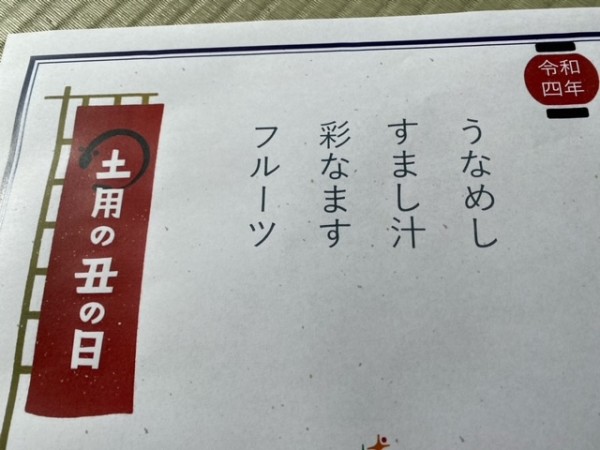 令和
四年
うなめし
すまし汁
彩なます
フルーツ
土用の丑の日